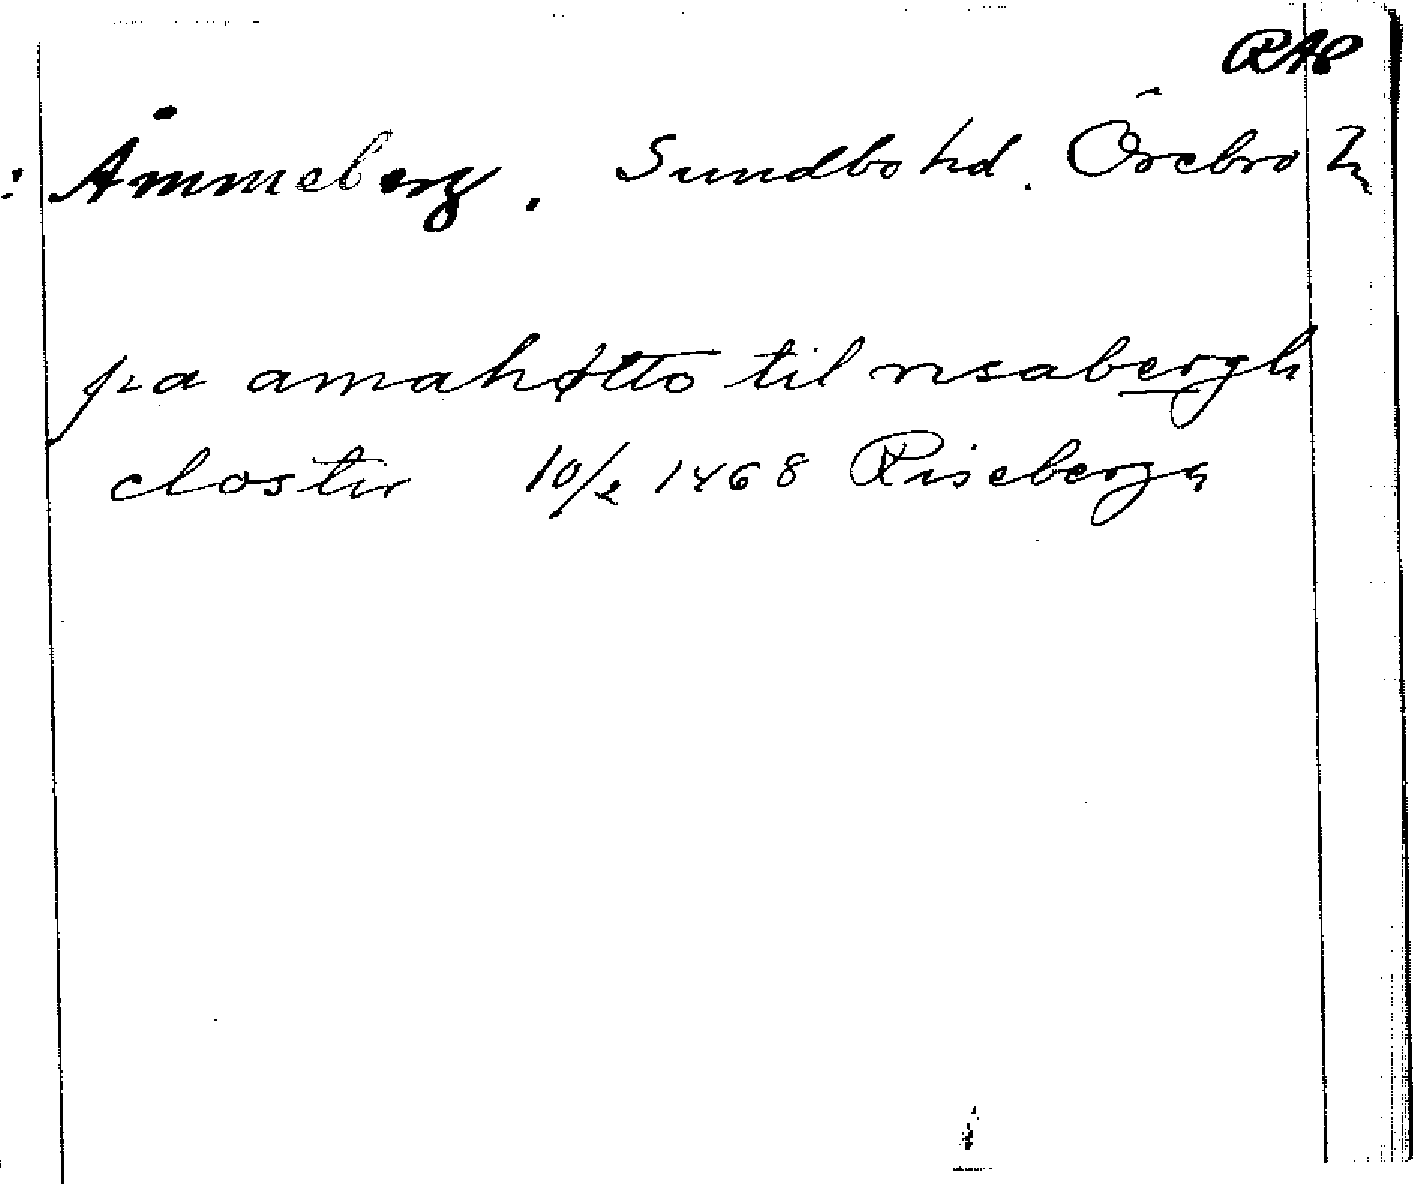 RAP
: Åmmeberg. Sundbo hd. Örebro ln
pa amahøtto til risabergh
closter 10/2 1468 Riseberga